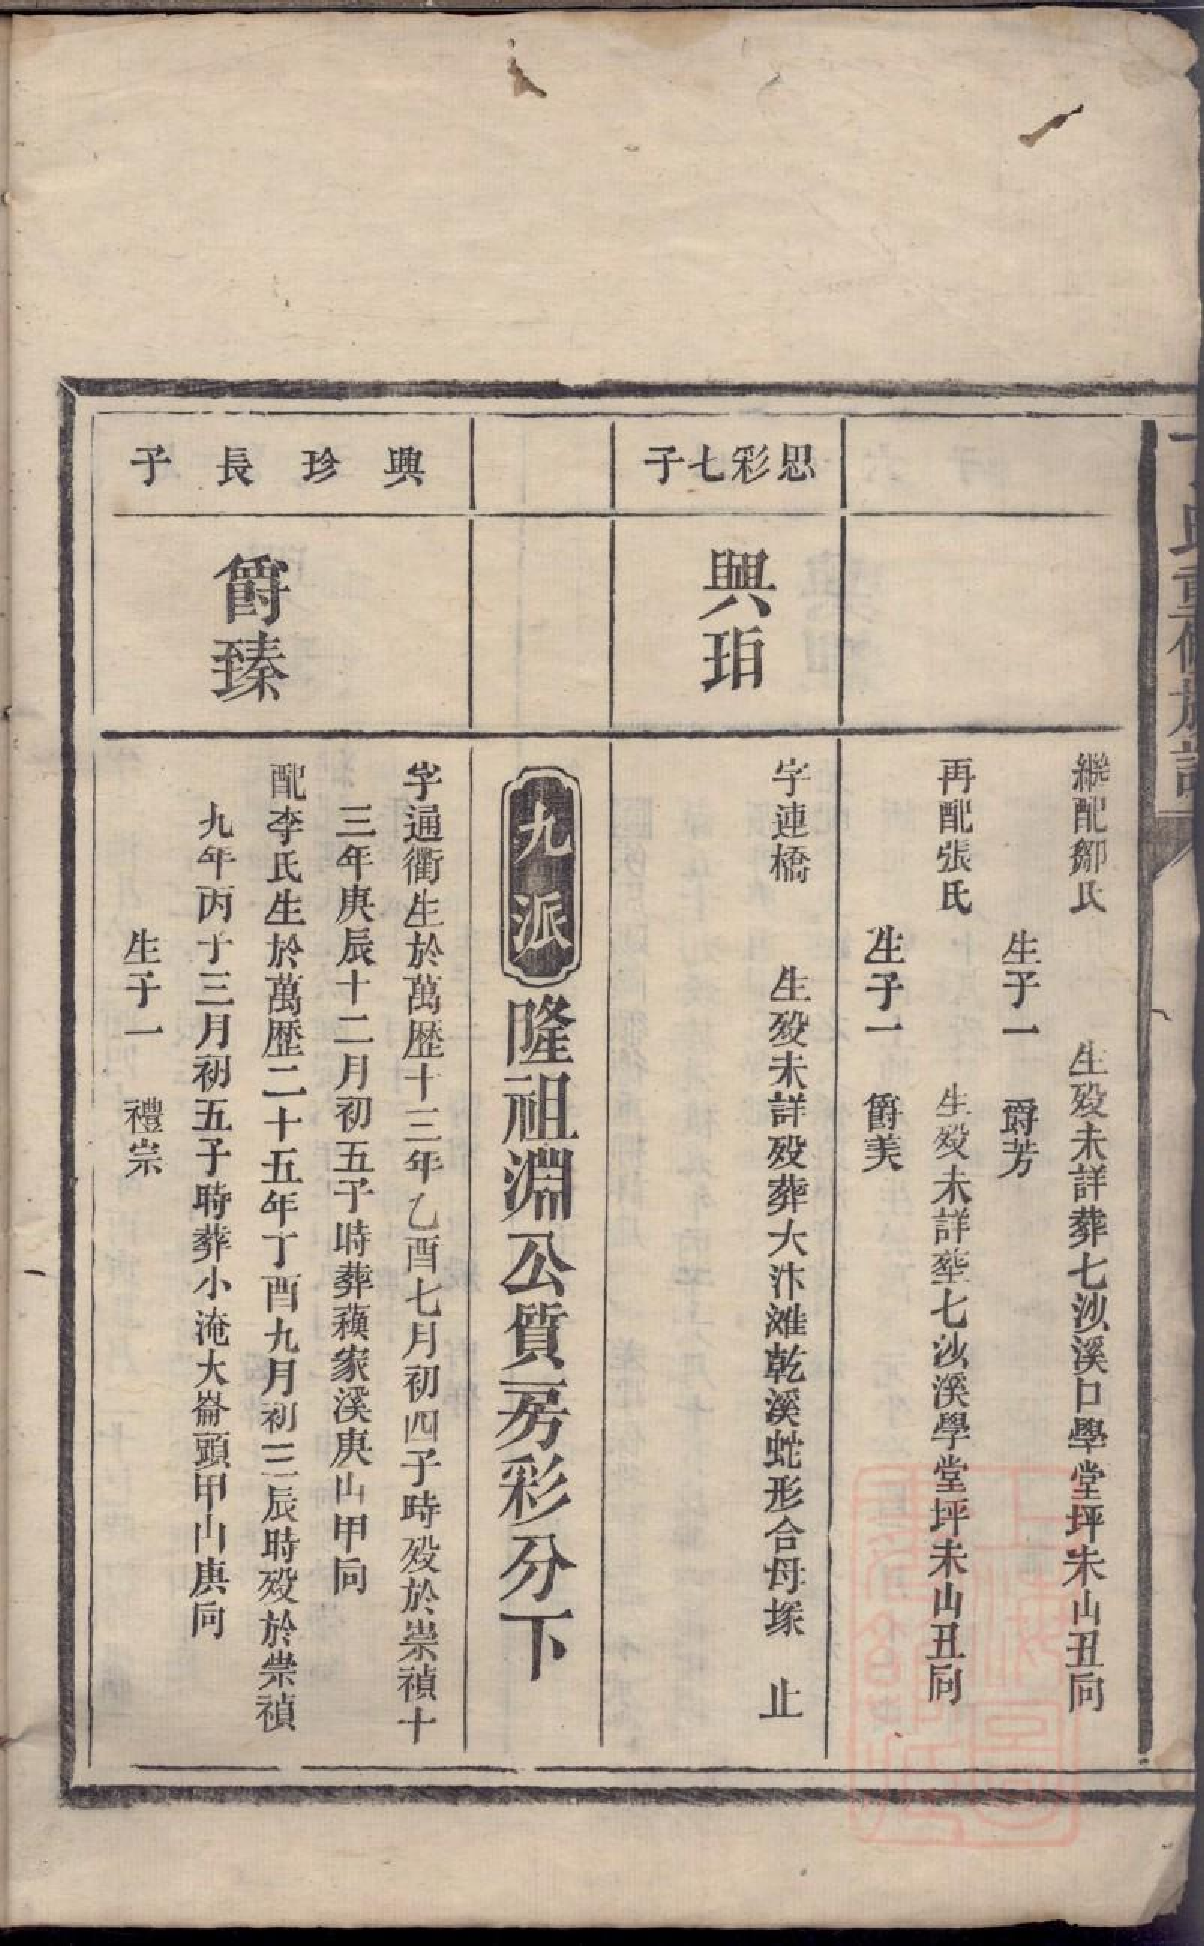 重修族譜
繼配鄒氏 生歿未詳葬七沙溪口學堂坪未山丑向
生子一 爵芳
再配張氏 生歿未詳塟七沙溪學堂坪未山丑向
生子一 爵美
思彩七子
興珀
字連橋 生歿未詳歿葬大汴滩乾溪虵形合母塜 止
九派
隆祖淵公質房彩分下
興珍長子
爵臻
字通衢生於萬歷十三年乙酉七月初四子時歿於崇禎十
三年庚辰十二月初五子時葬蘋家溪庚山甲向
配李氏生於萬歷二十五年丁酉九月初三辰時歿於崇禎
九年丙子三月初五子時葬小淹大崙頭甲山庚向
生子一 禮宗